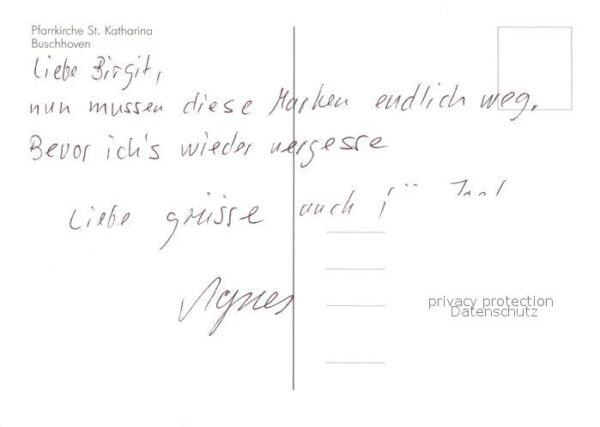 Pfarrkirche St. Katharina
Buschhoven
Liebe Birgit,
nun mussen diese Marken endlich weg.
Bevor ich's wieder vergesse
Liebe grüsse auch
Agnes
privacy protection
Datenschutz